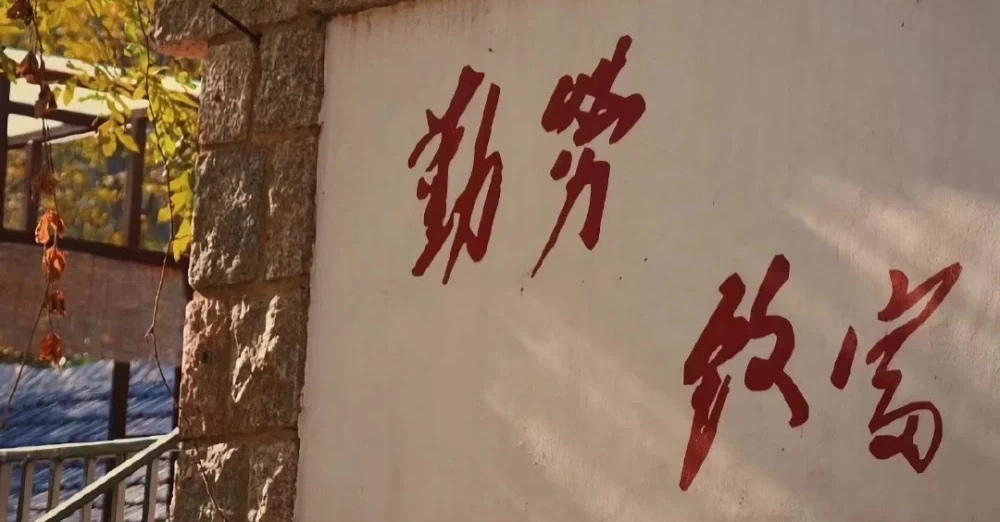 勤劳
致富